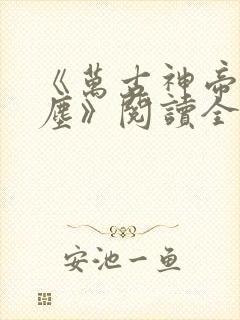 《萬古神帝
塵》閱讀全
安池一鱼